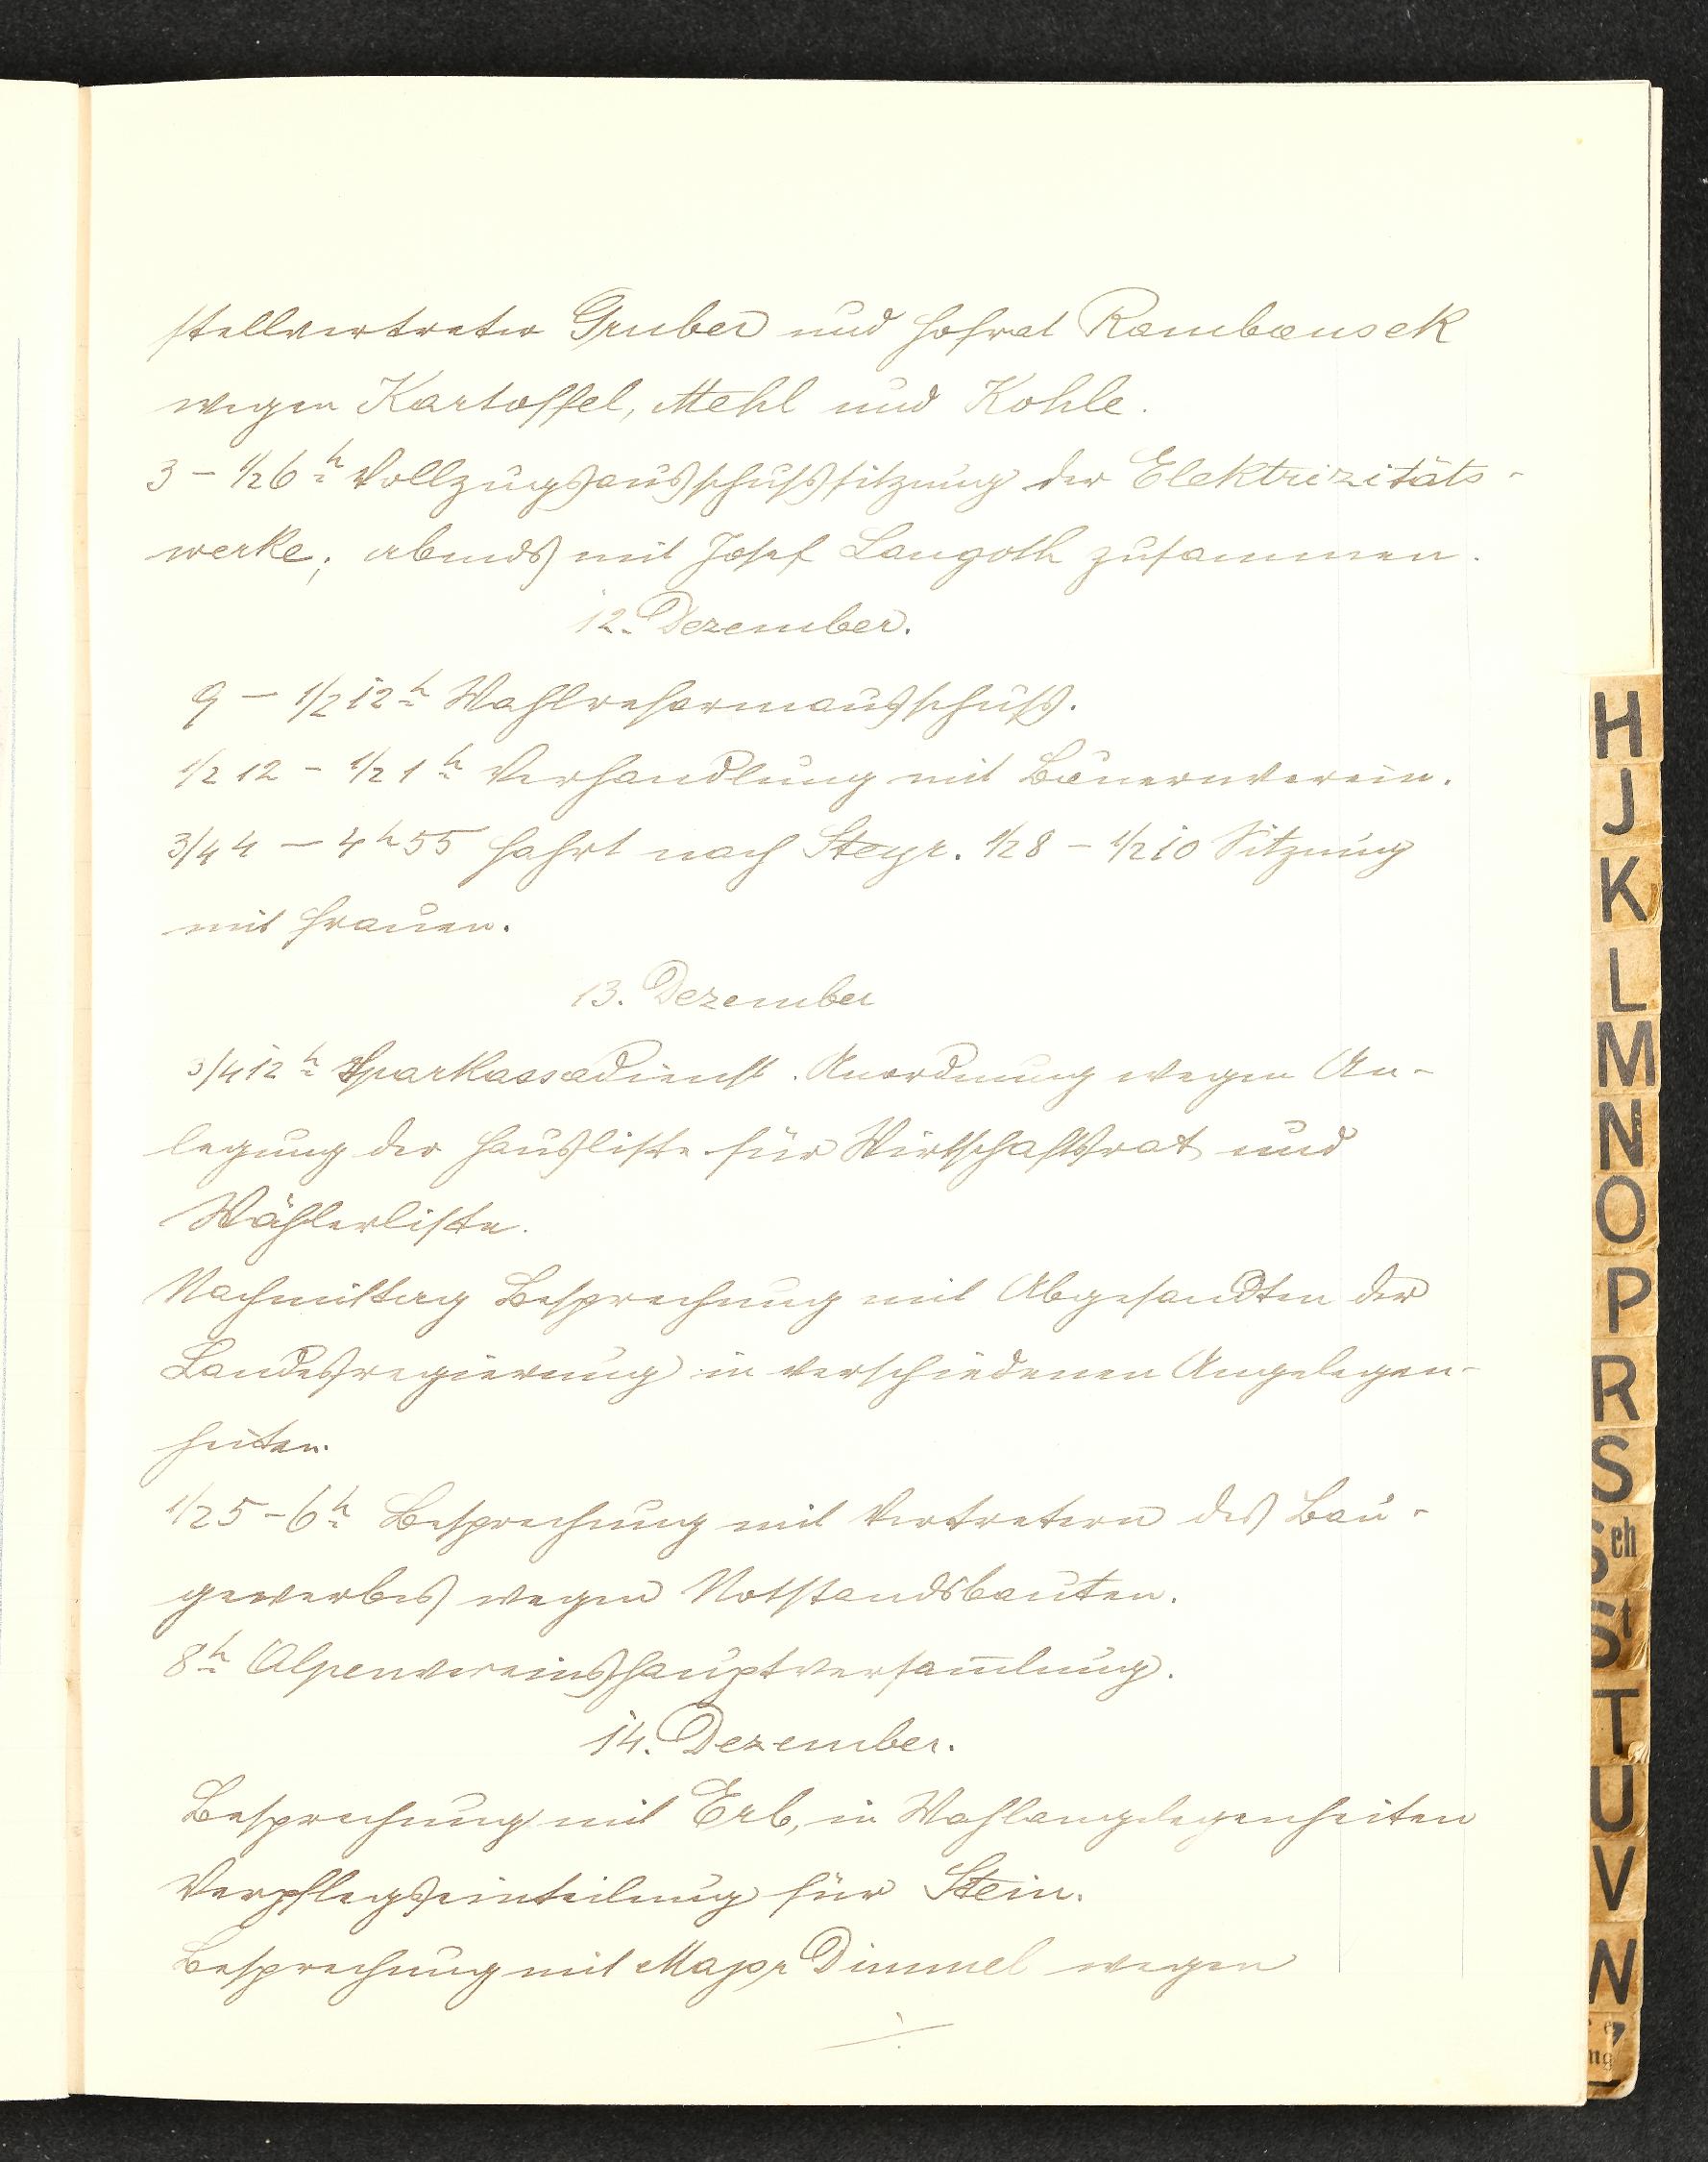 stellvertreter Gruber und Hofrat Rambousek
wegen Kartoffel, Mehl und Kohle.
3 – 1/2 6 h Vollzugsausschußsitzung der Elektrizitäts-
werke; abends mit Josef Langoth zusammen.
12. Dezember.
9 – 1/2 12 h Wahlreformausschuß.
1/2 12 – 1/2 1 h Verhandlung mit Bauernverein.
3/4 4 – 4 h 55 Fahrt nach Steyr. 1/2 8 – 1/2 10 Sitzung
mit Frauen.
13. Dezember
3/4 12 h Sparkassadienst. Anordnung wegen An-
legung der Hausliste für Wirtschaftsrat und
Wählerliste.
Nachmittag Besprechung mit Abgesandten der
Landesregierung in verschiedenen Angelegen-
heiten.
1/2 5 – 6 h Besprechung mit Vertretern des Bau-
gewerbes wegen Notstandsbauten.
8 h Alpenvereinshauptversam̅lung.
14. Dezember.
Besprechung mit Erb, in Wahlangelegenheiten
Verpflegseinteilung für Stein.
Besprechung mit Major Dimmel wegen
./.
H
J
K
L
M
N
O
P
R
S
Sch
St
T
U
V
W